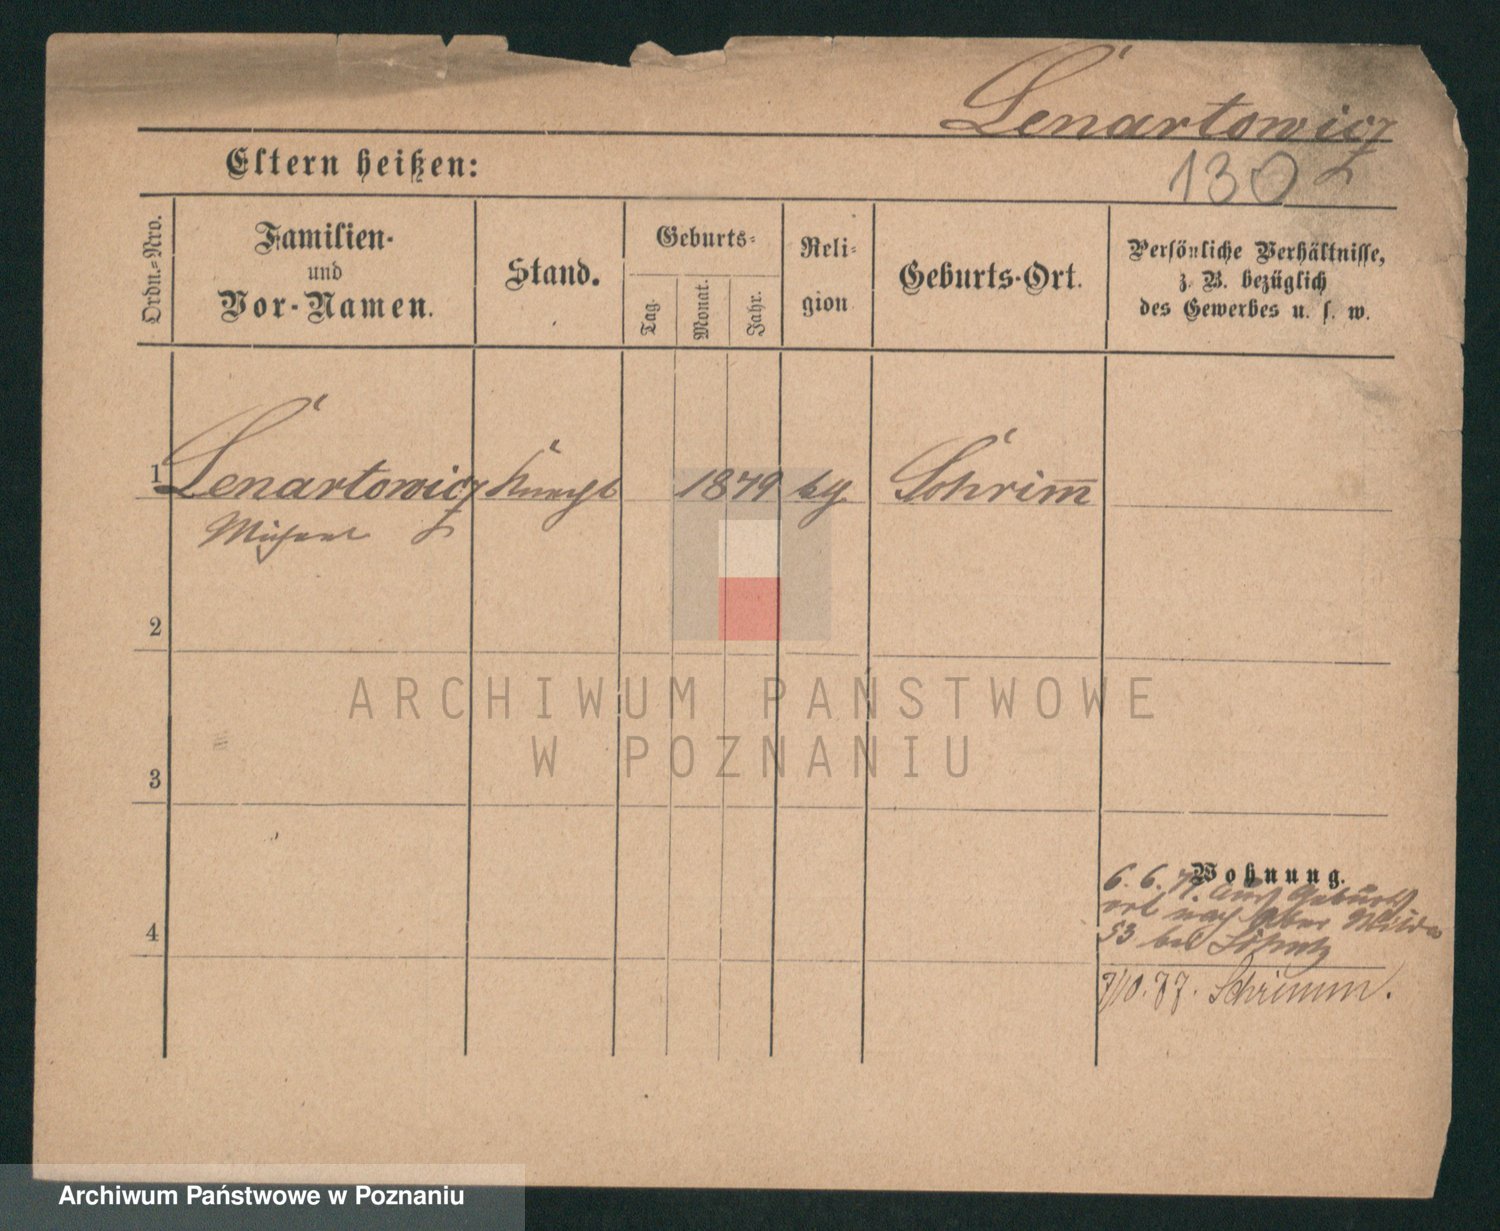 Lenartowicz
130
Eltern heißen:
Ordn.-Nro.
Familien-
und
Vor-Namen.
Stand.
Geburts-
Tag.
Monat.
Jahr.
Reli-
gion
Geburts-Ort.
Persönliche Verhältnisse,
z. B. bezüglich
des Gewerbes u. s. w.
1 Lenartowicz Knecht 1879 Schrim̅
Michael
2
ARCHIWUM PAŃSTWOWE
W POZNANIU
3
Wohnung.
6. 6. Geburts
ort nach Ober
4
53 bei
7/10. 77. Schrimm.
Archiwum Państwowe w Poznaniu